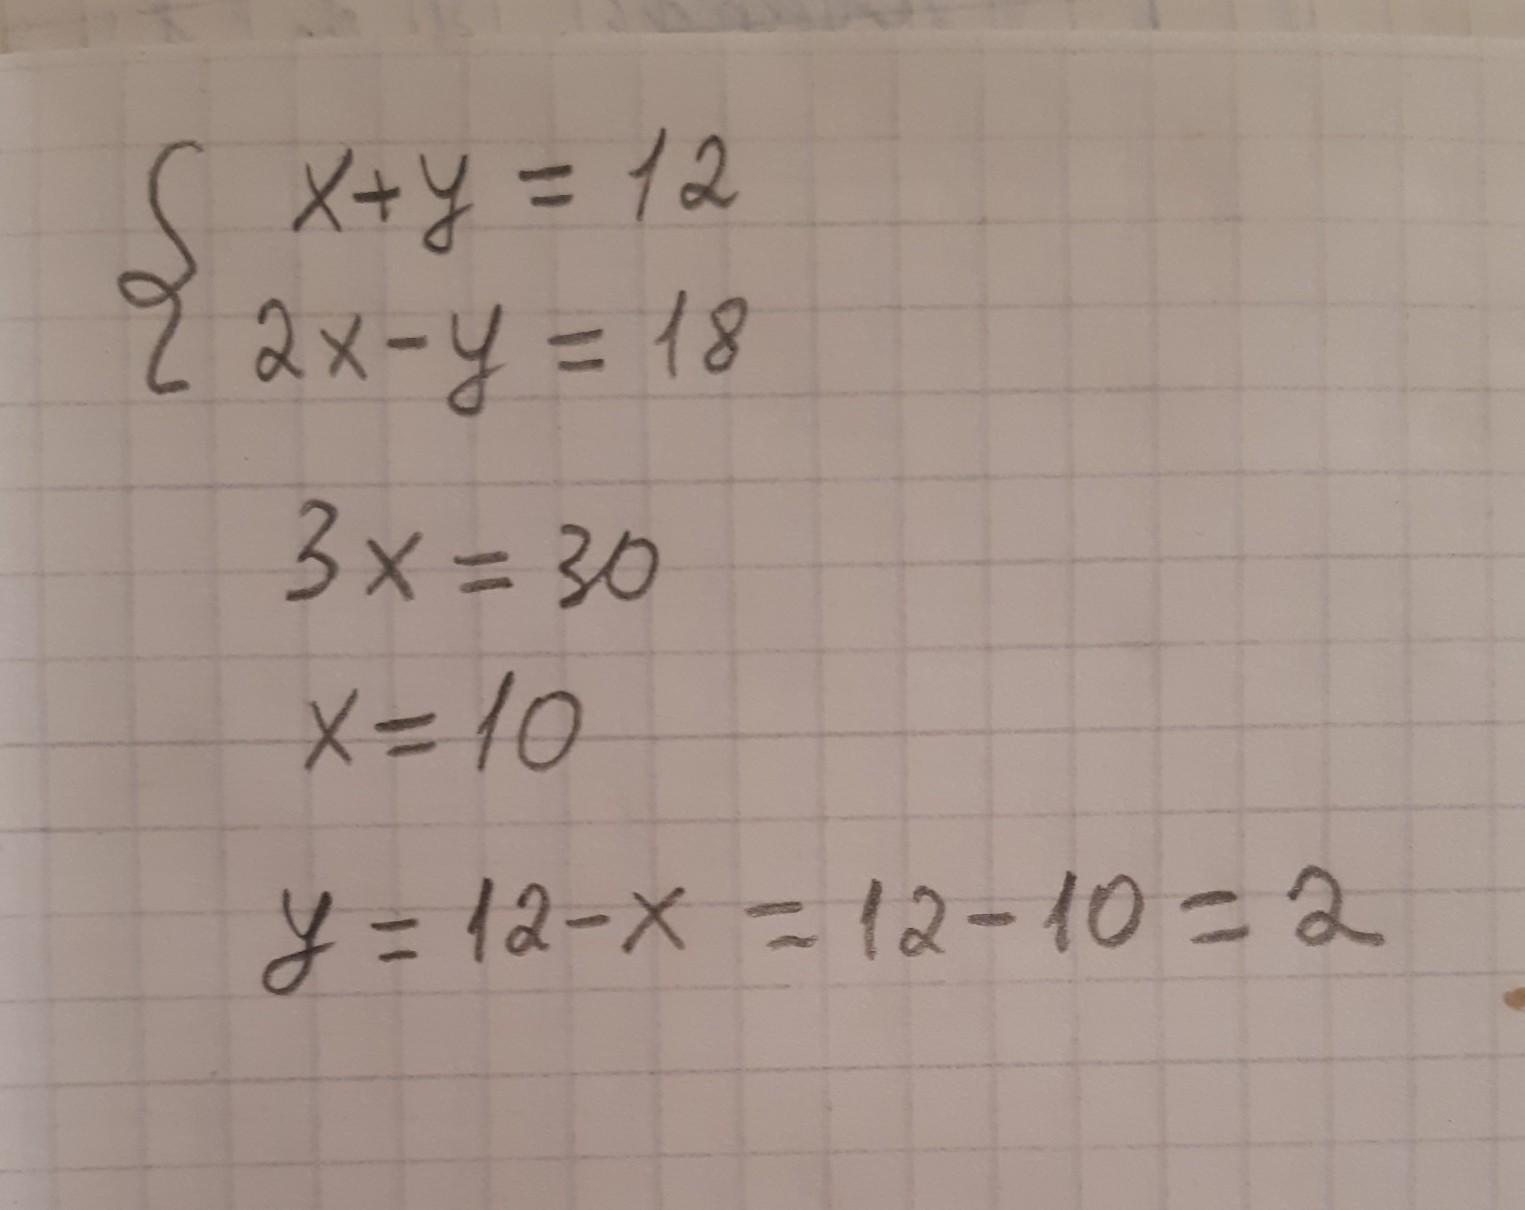 { x+y = 12
2x-y = 18
3x = 30
x = 10
y = 12-x = 12-10 = 2